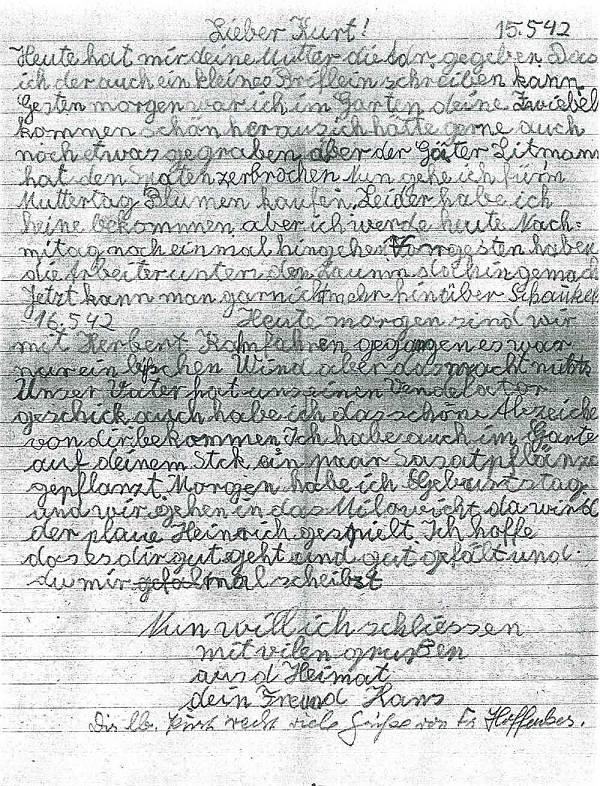 Lieber Kurt! 15.5 42
Heute hat mir deine Mutter die Adr. gegeben. Das
ich der auch ein kleines Briflein schreiben kann.
Gesten morgen war ich im Garten deine Zwiebel
kommen schön heraus ich hätte gerne auch
noch etwas gegraben aber der Litmann
hat den Spaten zerbrochen Nun gehe ich fürm
Muttertag Blumen kaufen. Leider habe ich
keine bekommen aber ich werde heute Nach-
mitag noch einmal hingehen Vorngesten haben
die Arbeiter unten den Zaunn gemach
Jetzt kann man garnicht mehr hinüber Schauken
16.5 42 Heute morgen sind wir
mit Herbert Kahnfahren gegangen es war
nur ein bischen Wind aber das macht nichts
Unser Vater hat uns einen
geschick auch habe ich das schöne Abzeiche
von dir bekommen Ich habe auch im Garte
auf deinem Stck ein paar
gepflanzt Morgen habe ich Geburtstag
und wir gehen in das da wird
der plaue Heinrich gespielt. Ich hoffe
das es dir gut geht und gut gefält und
du mir mal scheibst
Nun will ich schliessen
mit vilen grußen
aus d Heimat
dein Freund Hans
Dir lb. Kurt recht viele Grüße von Fr.